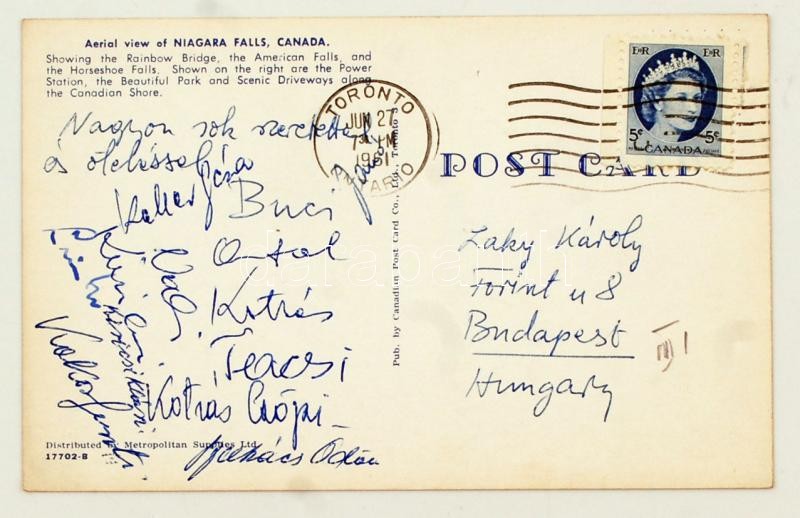 Aerial view of NIAGARA FALLS, CANADA.
Showing the Rainbow Bridge, the American Falls, and
the Horseshoe Falls. Shown on the right are the Power
Station, the Beautiful Park and Scenic Driveways along
the Canadian Shore.
Nagyon sok szeretettel
és öleléssel
Keller Géza
Buci
Antal
Kotrás
Teacsi
Kotrás Csöpi
Takács Ödön
Distributed by Metropolitan Supplies Ltd.
17702-B
Pub. by Canadian Post Card Co., Ltd., Toronto
TORONTO
JUN 27
PM
1961
ONTARIO
POST CARD
EIIR
EIIR
5¢
5¢
CANADA
Laky Károly
Forint u 8
Budapest
III
Hungary
darabanth